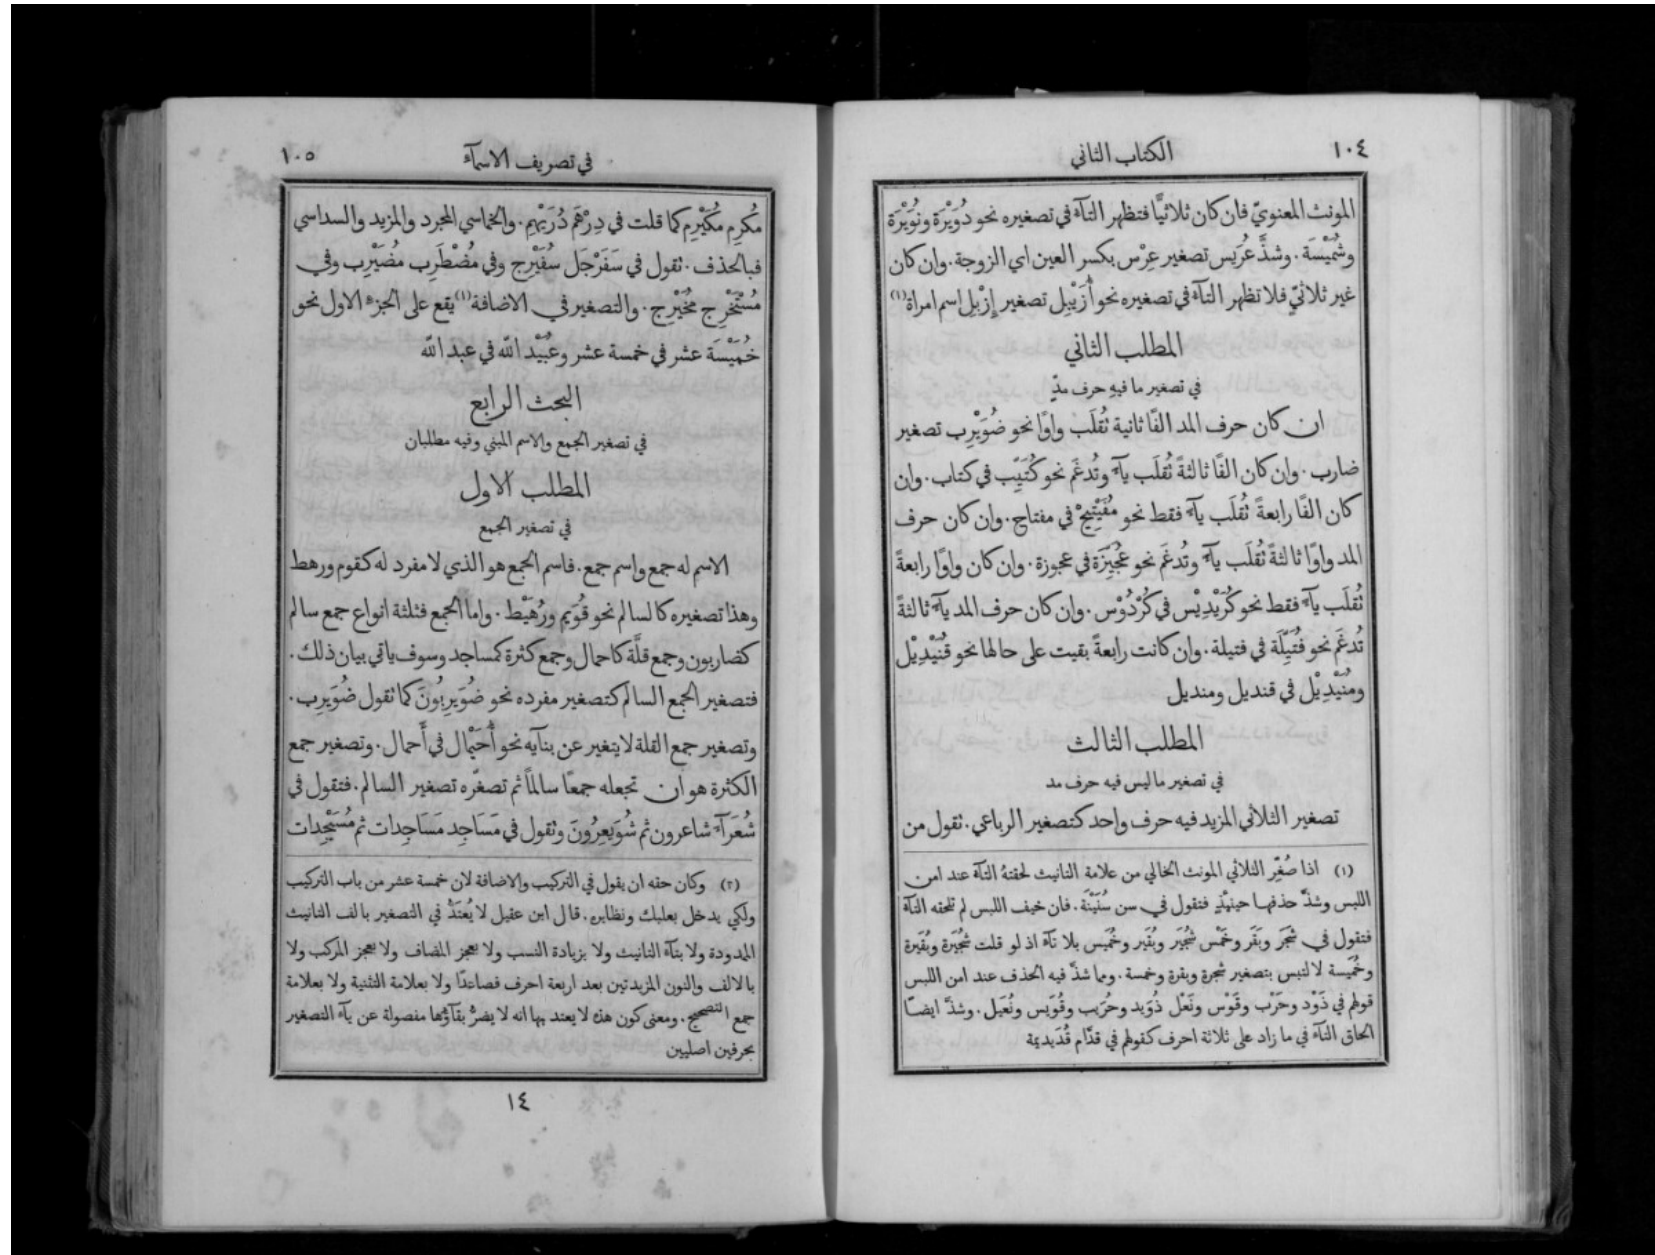 ١٠٤
الكتاب الثاني
المونث المعنويّ فان كان ثلاثيًّا فتظهر التآء في تصغيره نحو دُوَيْرَة ونُوَيْرَة
وشُمَيْسَة. وشذَّ عُرَيس تصغير عِرْس بكسر العين اي الزوجة. وان كان
غير ثلاثيّ فلا تظهر التآء في تصغيره نحو أُزَيْبِل تصغير إِزْبِل اسم امراة (١)
المطلب الثاني
في تصغير ما فيهِ حرف مدٍّ
ان كان حرف المد الفًا ثانية تُقلَب واوًا نحو ضُوَيْرِب تصغير
ضارب. وان كان الفًا ثالثةً تُقلَب يآء وتُدغَم نحو كُتَيِّب في كتاب. وان
كان الفًا رابعةً تُقلَب يآء فقط نحو مُفَيْتِيْح في مفتاح. وان كان حرف
المد واوًا ثالثةً تُقلَب يآء وتُدغَم نحو عُجَيِّزَة في عجوزة. وان كان واوًا رابعةً
تُقلَب يآء فقط نحو كُرَيْدِيْس في كُرْدُوْس. وان كان حرف المد يآء ثالثةً
تُدغَم نحو فُتَيِّلَة في فتيلة. وان كانت رابعةً بقيت على حالها نحو قُنَيْدِيْل
ومُنَيْدِيْل في قنديل ومنديل
المطلب الثالث
في تصغير ما ليس فيه حرف مد
تصغير الثلاثي المزيد فيه حرف واحد كتصغير الرباعي. تقول من
(١) اذا صُغِّر الثلاثي المونث الخالي من علامة التانيث لحقتهُ التآء عند امن
اللبس وشذّ حذفها حينئذٍ فتقول في سن سُنَيْنَة. فان خيف اللبس لم تلحقه التآء
فتقول في شَجَر وبَقَر وخَمْس شُجَير وبُقَير وخُمَيس بلا تآء اذ لو قلت شُجَيرة وبُقَيرة
وخُمَيسة لالتبس بتصغير شجرة وبقرة وخمسة. ومما شذّ فيه الحذف عند امن اللبس
قولهم في ذَوْد وحَرْب وقَوْس ونَعْل ذُوَيد وحُرَيب وقُوَيس ونُعَيل. وشذّ ايضًا
الحاق التآء في ما زاد على ثلاثة احرف كقولهم في قدّام قُدَيديمة
في تصريف الاسمآء
١٠٥
مُكرِم مُكَيْرِم كما قلت في دِرْهَم دُرَيْهِم. والخماسي المجرد والمزيد والسداسي
فبالحذف. تقول في سَفَرْجَل سُفَيْرِج وفي مُضْطَرِب مُضَيْرِب وفي
مُسْتَخْرِج مُخَيْرِج. والتصغير في الاضافة (١) يقع على الجزء الاول نحو
خُمَيْسَة عشر في خمسة عشر وعُبَيْد اللّه في عبد اللّه
البحث الرابع
في تصغير الجمع والاسم المبني وفيه مطلبان
المطلب الاول
في تصغير الجمع
الاسم له جمع واسم جمع. فاسم الجمع هو الذي لا مفرد له كقوم ورهط
وهذا تصغيره كالسالم نحو قُوَيم ورُهَيْط. واما الجمع فثلثة انواع جمع سالم
كضاربون وجمع قلَّة كاحمال وجمع كثرة كمساجد وسوف ياتي بيان ذلك.
فتصغير الجمع السالم كتصغير مفرده نحو ضُوَيرِبُونَ كما تقول ضُوَيرِب.
وتصغير جمع القلة لا يتغير عن بنآيه نحو أُحَيْمال في أَحمال. وتصغير جمع
الكثرة هو ان تجعله جمعًا سالمًا ثم تصغّره تصغير السالم. فتقول في
شُعَرَآء شاعرون ثم شُوَيعِرُونَ وتقول في مَسَاجِد مَسَاجِدات ثم مُسَيْجِدات
(٢) وكان حقه ان يقول في التركيب والاضافة لان خمسة عشر من باب التركيب
ولكي يدخل بعلبك ونظايره. قال ابن عقيل لا يُعتَدُّ في التصغير بالف التانيث
الممدودة ولا بتآء التانيث ولا بزيادة النسب ولا بعجز المضاف ولا بعجز المركب ولا
بالالف والنون المزيدتين بعد اربعة احرف فصاعدًا ولا بعلامة التثنية ولا بعلامة
جمع التصحيح. ومعنى كون هذه لا يعتد بها انه لا يضرُّ بقآؤها مفصولة عن يآء التصغير
بحرفين اصليين
١٤